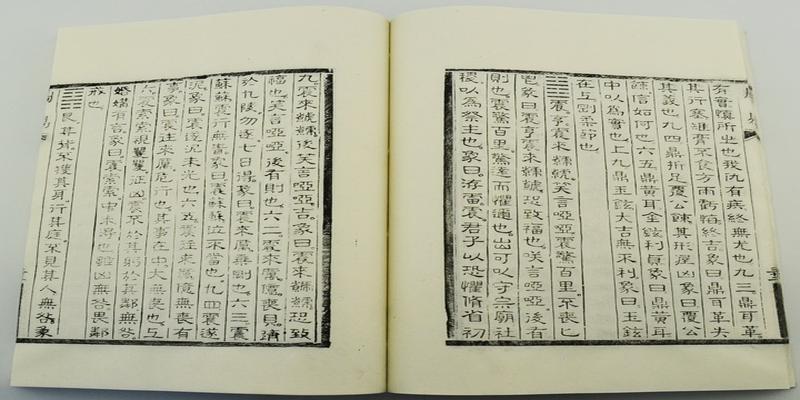 有實慎所之也我仇有疾終無尤也九三鼎耳革
其行塞雉膏不食方雨虧悔終吉象曰鼎耳革失
其義也九四鼎折足覆公餗其形渥凶象曰覆公
餗信如何也六五鼎黃耳金鉉利貞象曰鼎黃耳
中以為實也上九鼎玉鉉大吉無不利象曰玉鉉
在上剛柔節也
䷲震亨震來虩虩笑言啞啞震驚百里不喪匕
鬯彖曰震亨震來虩虩恐致福也笑言啞啞後有
則也震驚百里驚遠而懼邇也出可以守宗廟社
稷以為祭主也象曰洊雷震君子以恐懼脩省初
九震來虩虩後笑言啞啞吉象曰震來虩虩恐致
福也笑言啞啞後有則也六二震來厲億喪貝躋
於九陵勿逐七日得象曰震來厲乘剛也六三震
蘇蘇震行無眚象曰震蘇蘇位不當也九四震遂
泥象曰震遂泥未光也六五震往來厲億無喪有
事象曰震往來厲危行也其事在中大無喪也上
六震索索視矍矍征凶震不於其躬於其鄰無咎
婚媾有言象曰震索索中未得也雖凶無咎畏鄰
戒也
䷳艮其背不獲其身行其庭不見其人無咎彖